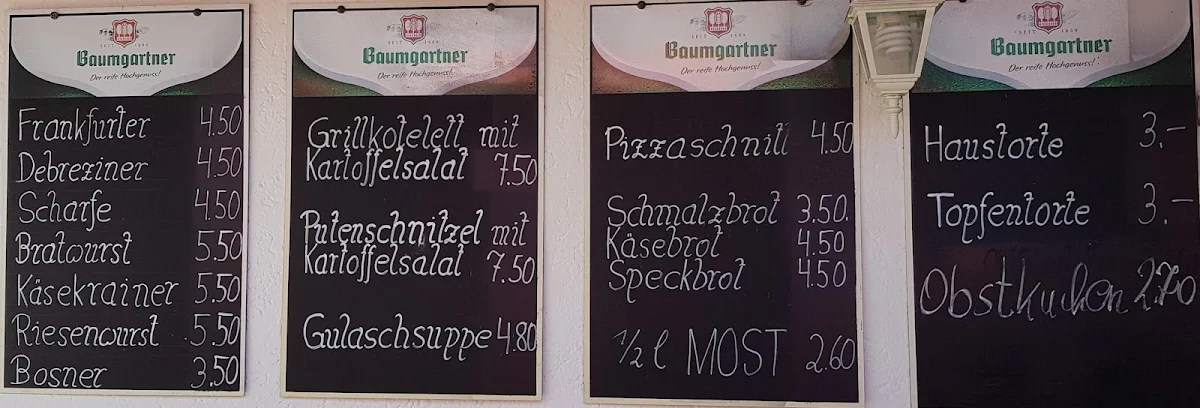 SEIT 1609
Baumgartner
Der reife Hochgenuss!
Frankfurter 4.50
Debreziner 4.50
Scharfe 4.50
Bratwurst 5.50
Käsekrainer 5.50
Riesenwurst 5.50
Bosner 3.50
SEIT 1609
Baumgartner
Der reife Hochgenuss!
Grillkotelett mit
Kartoffelsalat 7.50
Putenschnitzel mit
Kartoffelsalat 7.50
Gulaschsuppe 4.80
SEIT 1609
Baumgartner
Der reife Hochgenuss!
Pizzaschnitt 4.50
Schmalzbrot 3.50.
Käsebrot 4.50
Speckbrot 4.50
1/2 l MOST 2.60
SEIT 1609
Baumgartner
Der reife Hochgenuss!
Haustorte 3.-
Topfentorte 3.-
Obstkuchen 2.70